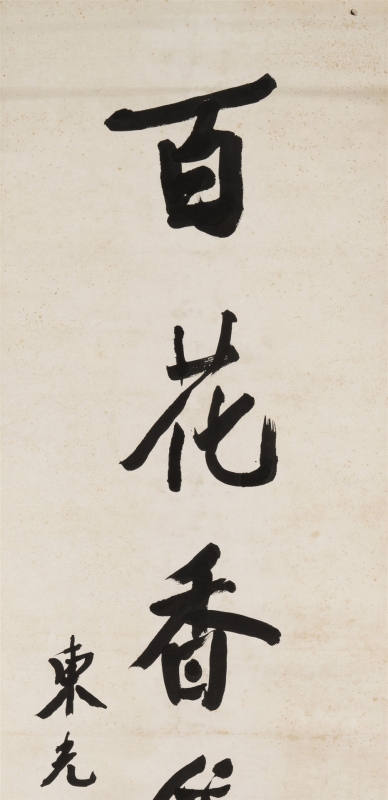 百花香
東光